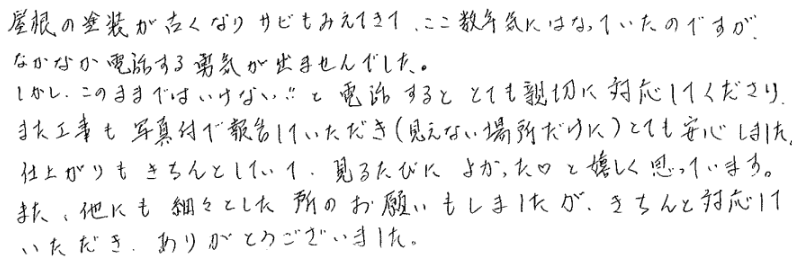 屋根の塗装が古くなりサビもみえてきて、ここ数年気にはなっていたのですが、
なかなか電話する勇気が出ませんでした。
しかし、このままではいけない!!と電話するととても親切に対応してくださり、
また工事も写真付で報告していただき(見えない場所だけに)とても安心しました。
仕上がりもきちんとしていて、見るたびによかった♡と嬉しく思っています。
また、他にも細々とした所のお願いもしましたが、きちんと対応して
いただき、ありがとうございました。